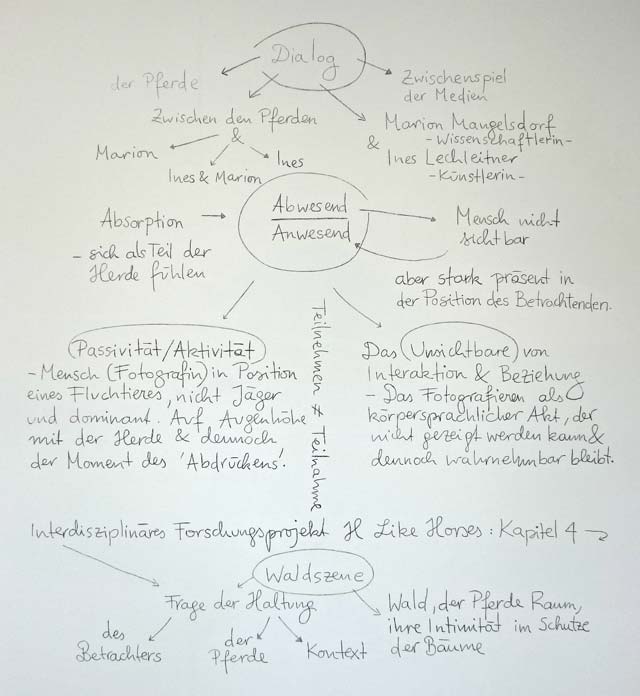 Dialog
der Pferde
Zwischenspiel
der Medien
Zwischen den Pferden
&
Marion
Ines & Marion
Ines
Marion Mangelsdorf
- Wissenschaftlerin -
&
Ines Lechleitner
- Künstlerin -
Absorption
- sich als Teil der
Herde fühlen
Abwesend
Anwesend
Mensch nicht
sichtbar
aber stark präsent in
der Position des Betrachtenden.
Passivität/Aktivität
- Mensch (Fotografin) in Position
eines Fluchtieres, nicht Jäger
und dominant. Auf Augenhöhe
mit der Herde & dennoch
der Moment des 'Abdrückens'.
Teilnehmen ≠ Teilnahme
Das Unsichtbare von
Interaktion & Beziehung
- Das Fotografieren als
körpersprachlicher Akt, der
nicht gezeigt werden kann &
dennoch wahrnehmbar bleibt.
Interdisziplinäres Forschungsprojekt H Like Horses : Kapitel 4
Waldszene
Frage der Haltung
des
Betrachters
der
Pferde
Kontext
Wald, der Pferde Raum,
ihre Intimität im Schutze
der Bäume